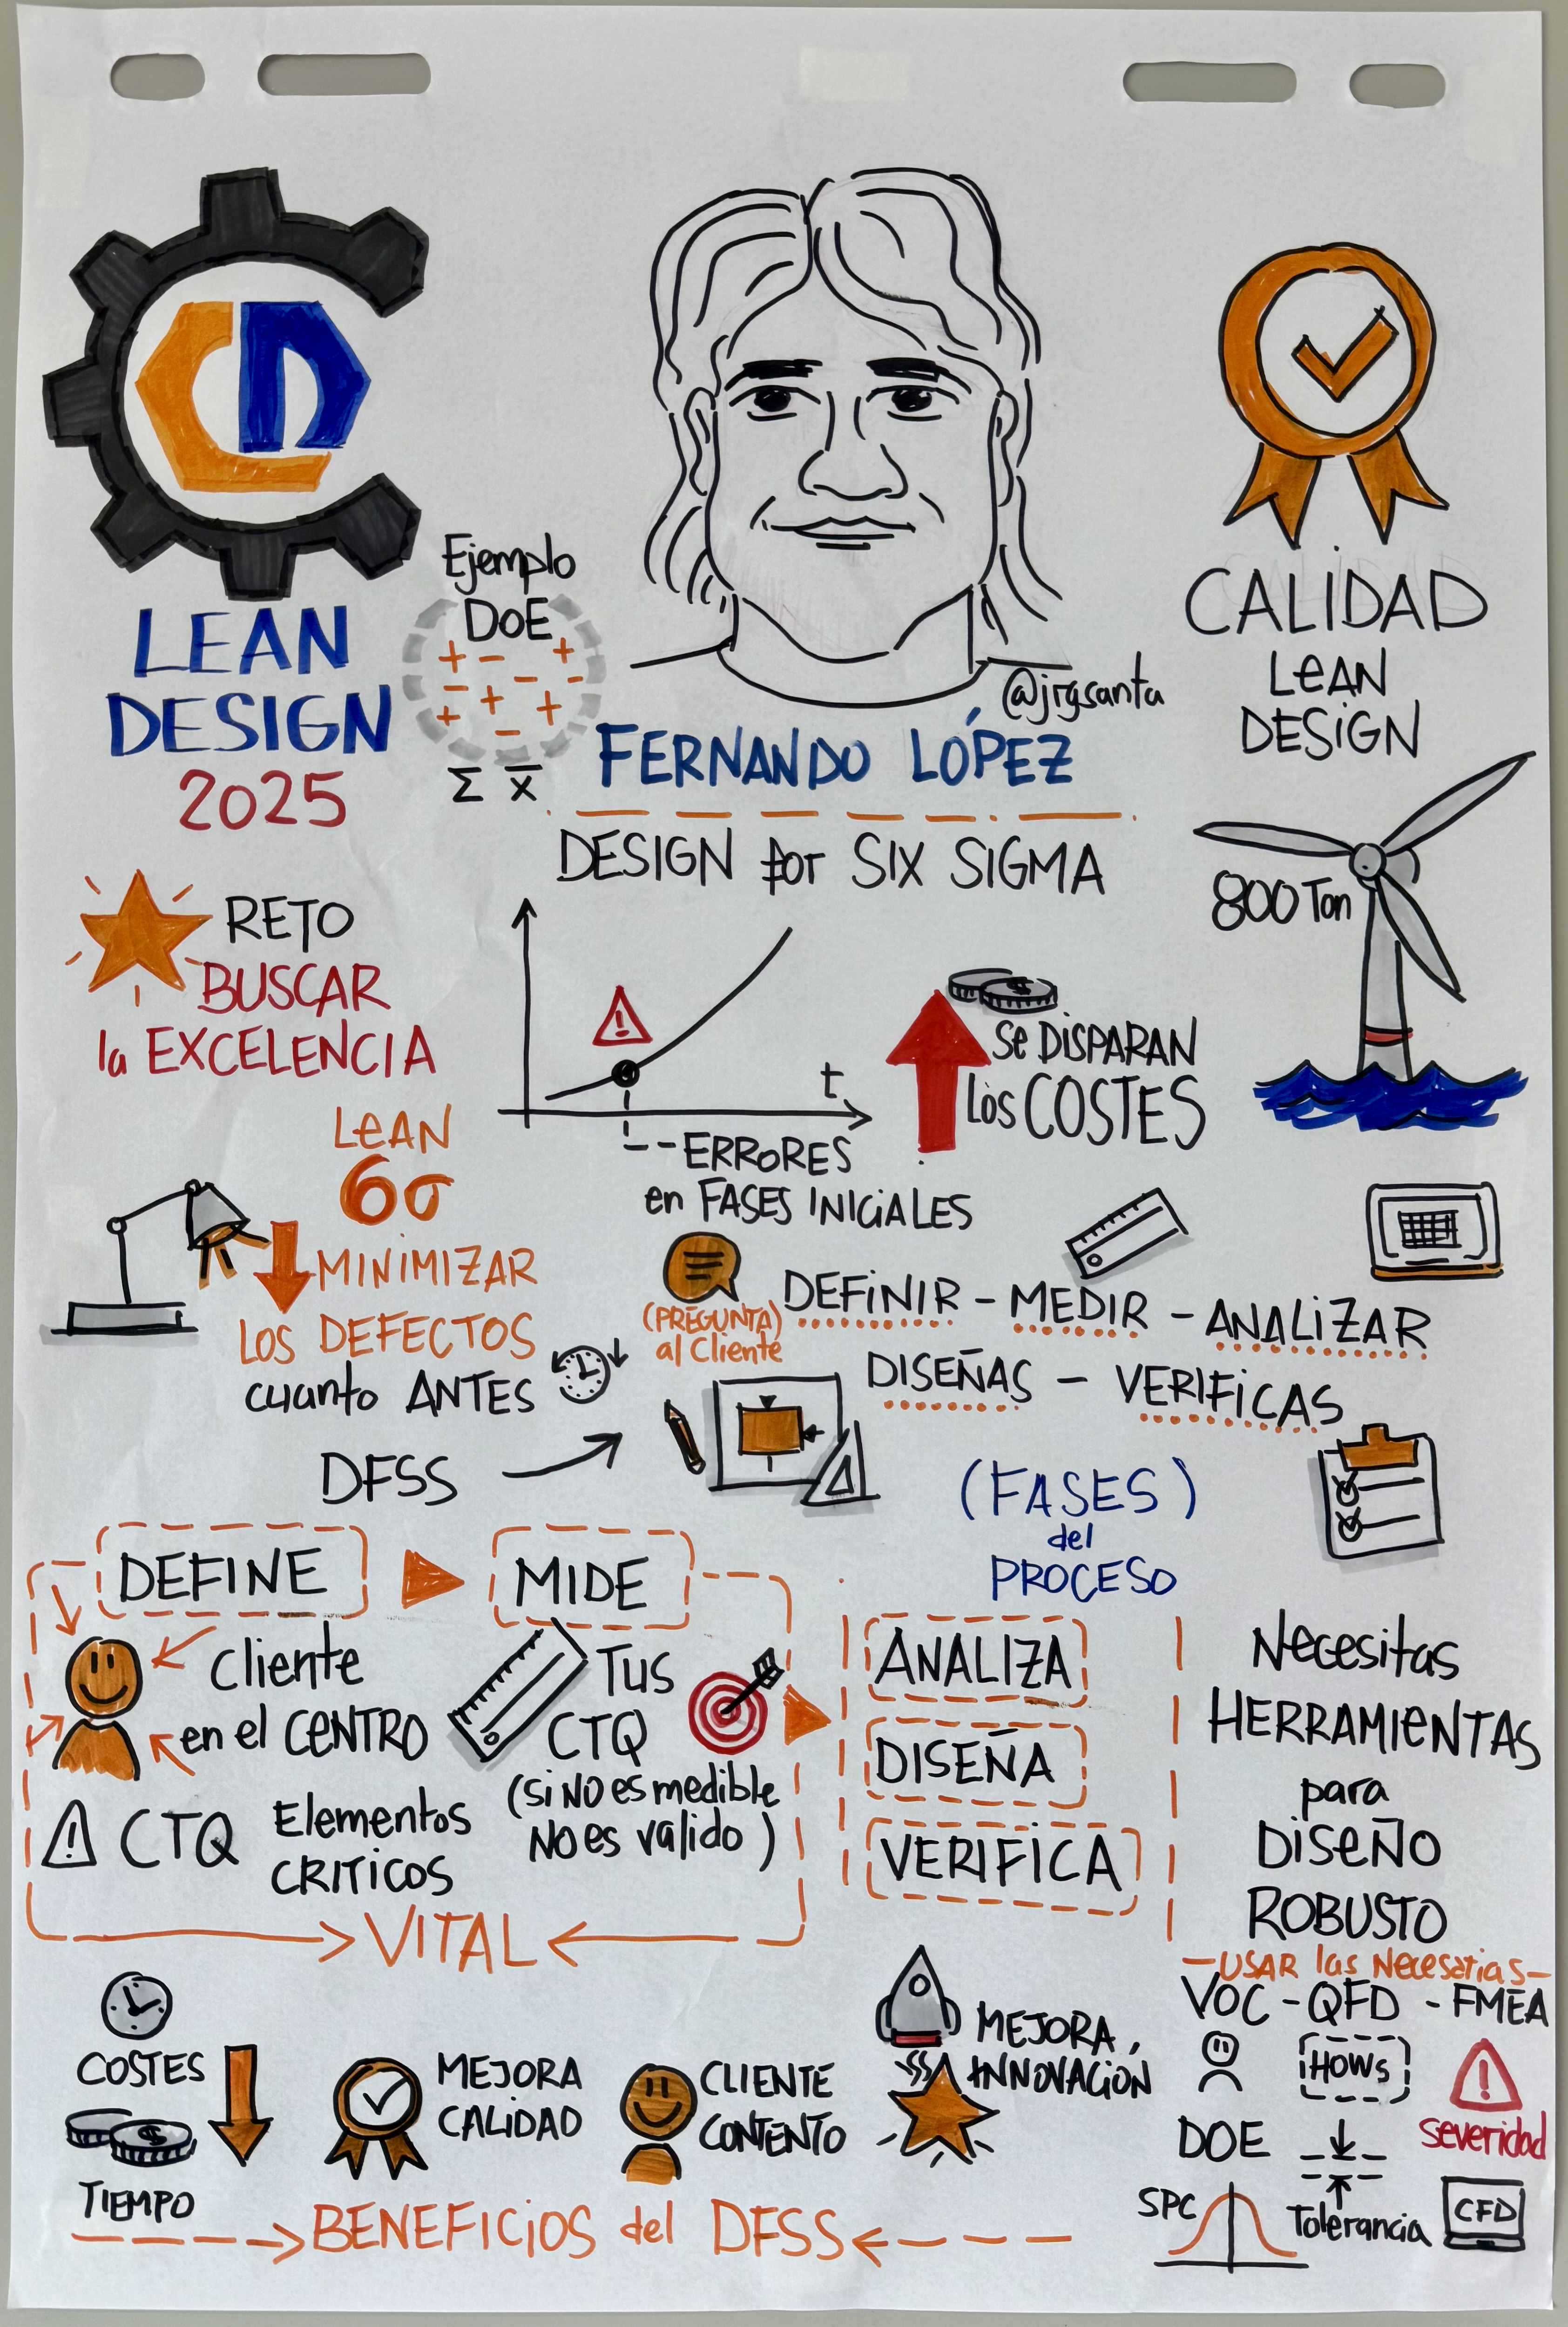 LEAN
DESIGN
2025
Ejemplo
DOE
Σ X̅
@jrgsanta
FERNANDO LÓPEZ
DESIGN for SIX SIGMA
CALIDAD
LEAN
DESIGN
800 Ton
RETO
BUSCAR
la EXCELENCIA
t
ERRORES
en FASES INICIALES
$
Se DISPARAN
Los COSTES
LEAN
6σ
MINIMIZAR
LOS DEFECTOS
cuanto ANTES
(PREGUNTA)
al Cliente
DEFINIR - MEDIR - ANALIZAR
DISEÑAS - VERIFICAS
DFSS
(FASES)
del
PROCESO
DEFINE
Cliente
en el CENTRO
CTQ
Elementos
CRITICOS
MIDE
TUS
CTQ
(Si NO es medible
NO es valido)
VITAL
ANALIZA
DISEÑA
VERIFICA
Necesitas
HERRAMIENTAS
para
DISEÑO
ROBUSTO
- USAR las Necesarias -
VOC - QFD - FMEA
HOWs
Severidad
DOE
Tolerancia
SPC
CFD
COSTES
$
TIEMPO
MEJORA
CALIDAD
CLIENTE
CONTENTO
MEJORA
INNOVACIÓN
BENEFICIOS del DFSS